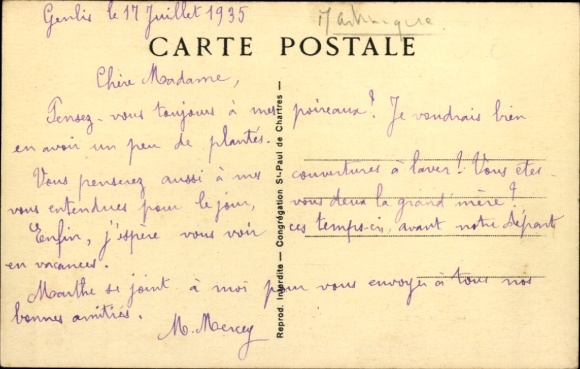 Genlis le 17 Juillet 1935
Martinique
CARTE POSTALE
Chère Madame,
Pensez-vous toujours à mes poireaux? Je voudrais bien
en avoir un peu de plantes.
Vous penserez aussi à mes couvertures à laver! Vous êtes-
vous entendues pour le jour, vous deux la grand'mère?
Enfin, j'espère vous voir ces temps-ci, avant notre départ
en vacances.
Marthe se joint à moi pour vous envoyer à tous nos
bonnes amitiés.
M. Mercey
Reprod. Interdite — Congrégation St-Paul de Chartres —